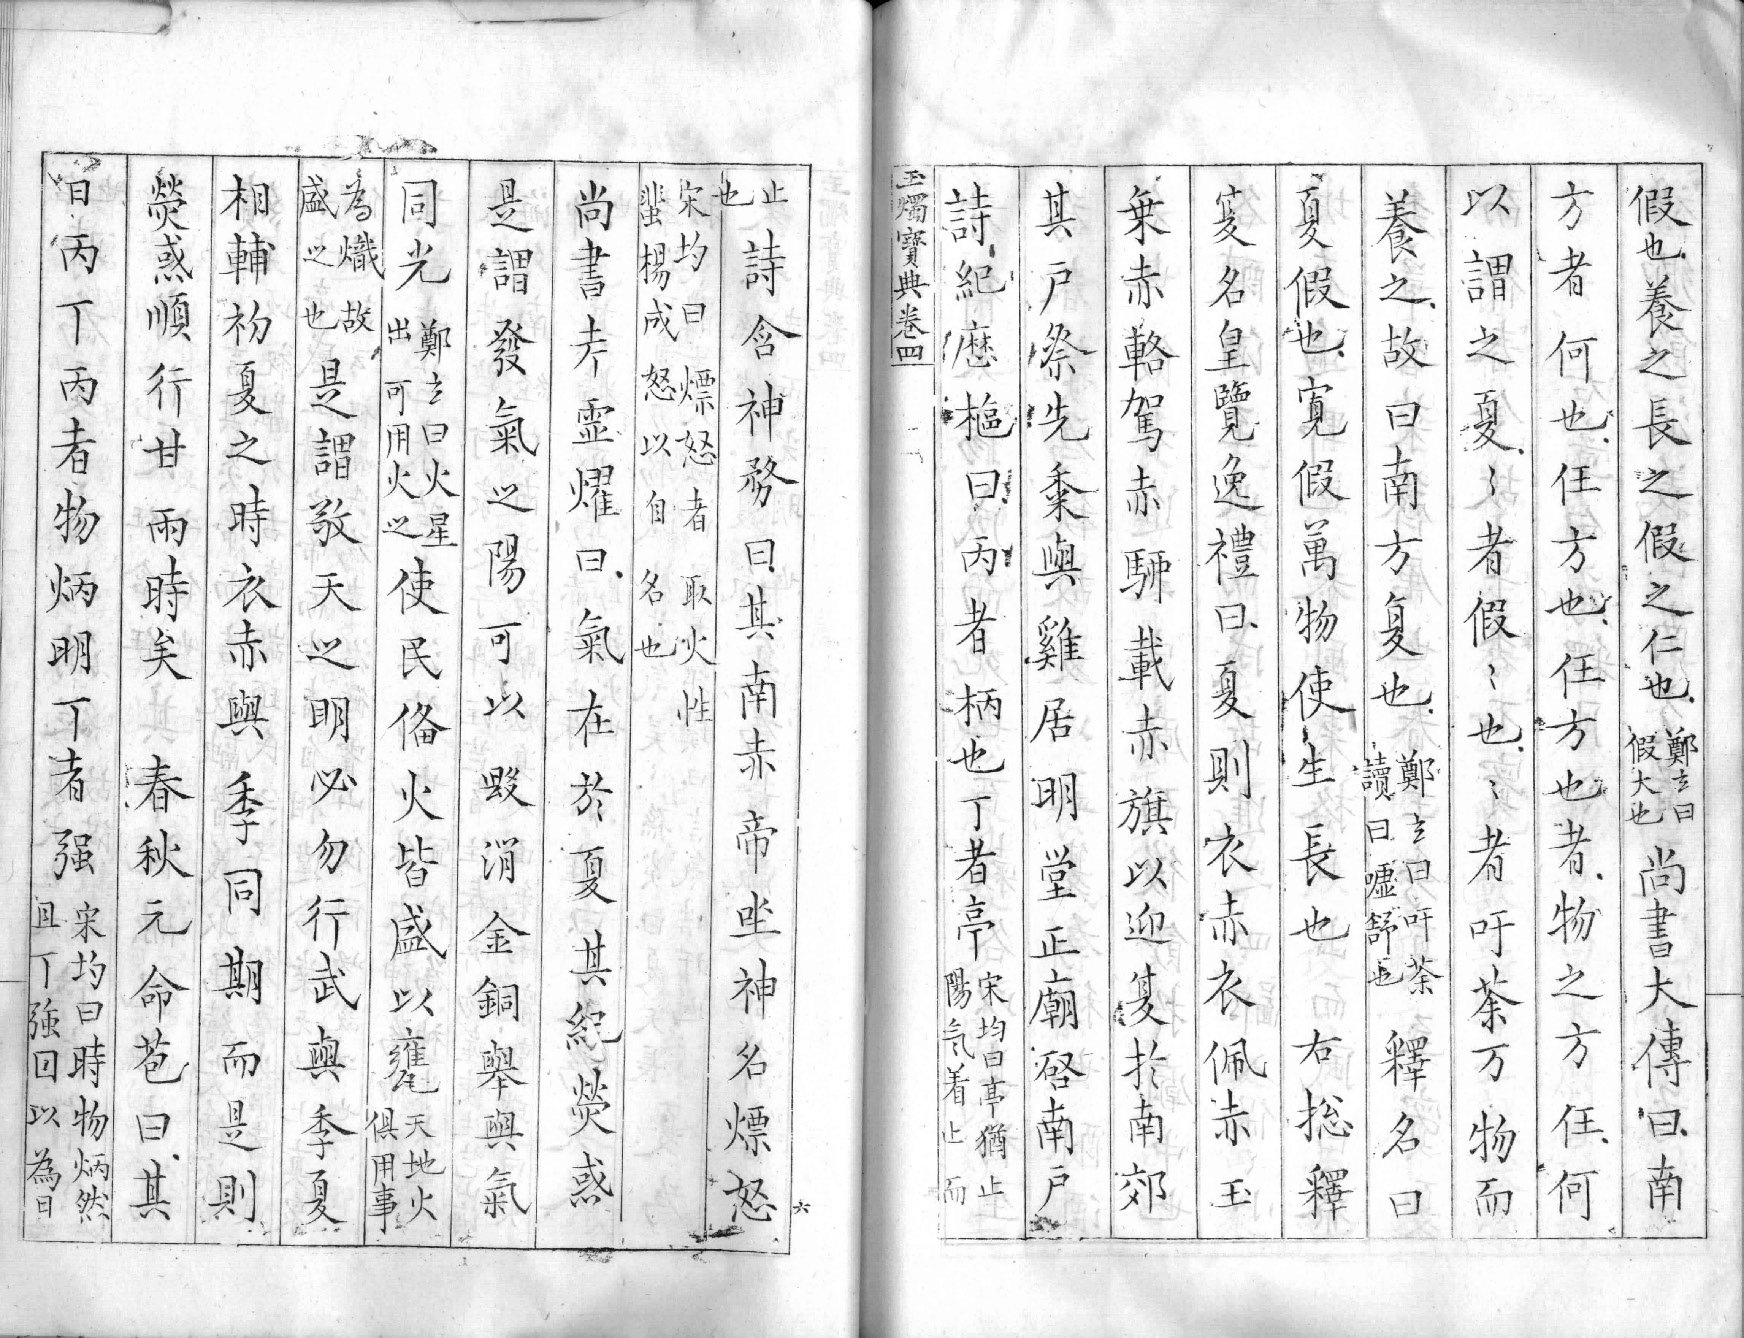 假也養之長之假之仁也鄭玄曰假大也尚書大傳曰南
方者何也任方也任方也者物之方任何
以謂之夏〻者假〻也〻者吁荼万物而
養之故曰南方夏也鄭玄曰吁荼讀曰嘘舒也釋名曰
夏假也寬假萬物使生長也右揔釋
夏名皇覽逸禮曰夏則衣赤衣佩赤玉
乗赤輅駕赤駵載赤旗以迎夏於南郊
其戶祭先黍與雞居明堂正廟啓南戶
詩紀歷樞曰丙者柄也丁者亭宋均曰亭猶止陽氣着止而
玉燭寶典卷四
六
止也詩含神務曰其南赤帝坐神名熛怒
宋均曰熛怒者取火性蜚楊成怒以自名也
尚書考靈燿曰氣在於夏其紀熒惑
是謂發氣之陽可以毀消金銅舉與氣
同光鄭玄曰火星出可用火之使民俻火皆盛以甕天地火俱用事
為熾故盛之也是謂敬天之明必勿行武與季夏
相輔初夏之時衣赤與季同期而是則
熒惑順行甘雨時矣春秋元命苞曰其
日丙丁丙者物炳明丁者强宋均曰時物炳然且丁強回以為日